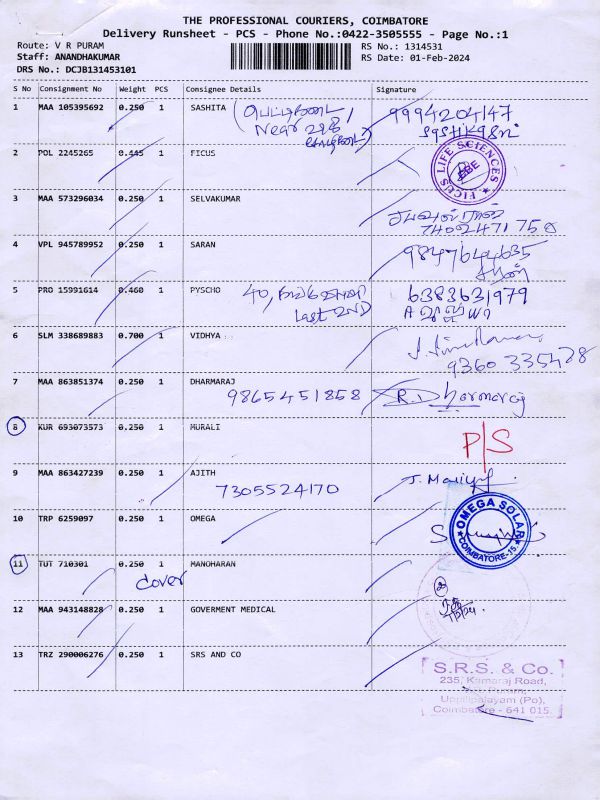 THE PROFESSIONAL COURIERS, COIMBATORE
Delivery Runsheet - PCS - Phone No.:0422-3505555 - Page No.:1
Route: V R PURAM RS No.: 1314531
Staff: ANANDHAKUMAR RS Date: 01-Feb-2024
DRS No.: DCJB131453101
S No Consignment No Weight PCS Consignee Details Signature
1 MAA 105395692 0.250 1 SASHITA 9994204147
Near
2 POL 2245265 0.445 1 FICUS
FICUS LIFE SCIENCES
CBE
3 MAA 573296034 0.250 1 SELVAKUMAR
4 VPL 945789952 0.250 1 SARAN 9847644635
5 PRO 15991614 0.460 1 PYSCHO 40, 6383631979
Last 2ND
6 SLM 338689883 0.700 1 VIDHYA
9360 335428
7 MAA 863851374 0.250 1 DHARMARAJ
9865451858 R. Dharmaraj
8 KUR 693073573 0.250 1 MURALI
P/S
9 MAA 863427239 0.250 1 AJITH
7305524170
10 TRP 6259097 0.250 1 OMEGA
OMEGA SOLAR
COIMBATORE-15
11 TUT 710301 0.250 1 MANOHARAN
cover
12 MAA 943148828 0.250 1 GOVERMENT MEDICAL
13 TRZ 290006276 0.250 1 SRS AND CO
S.R.S. & Co.
235, Kamaraj Road,
V.R. Puram,
Uppilipalayam (Po),
Coimbatore - 641 015.